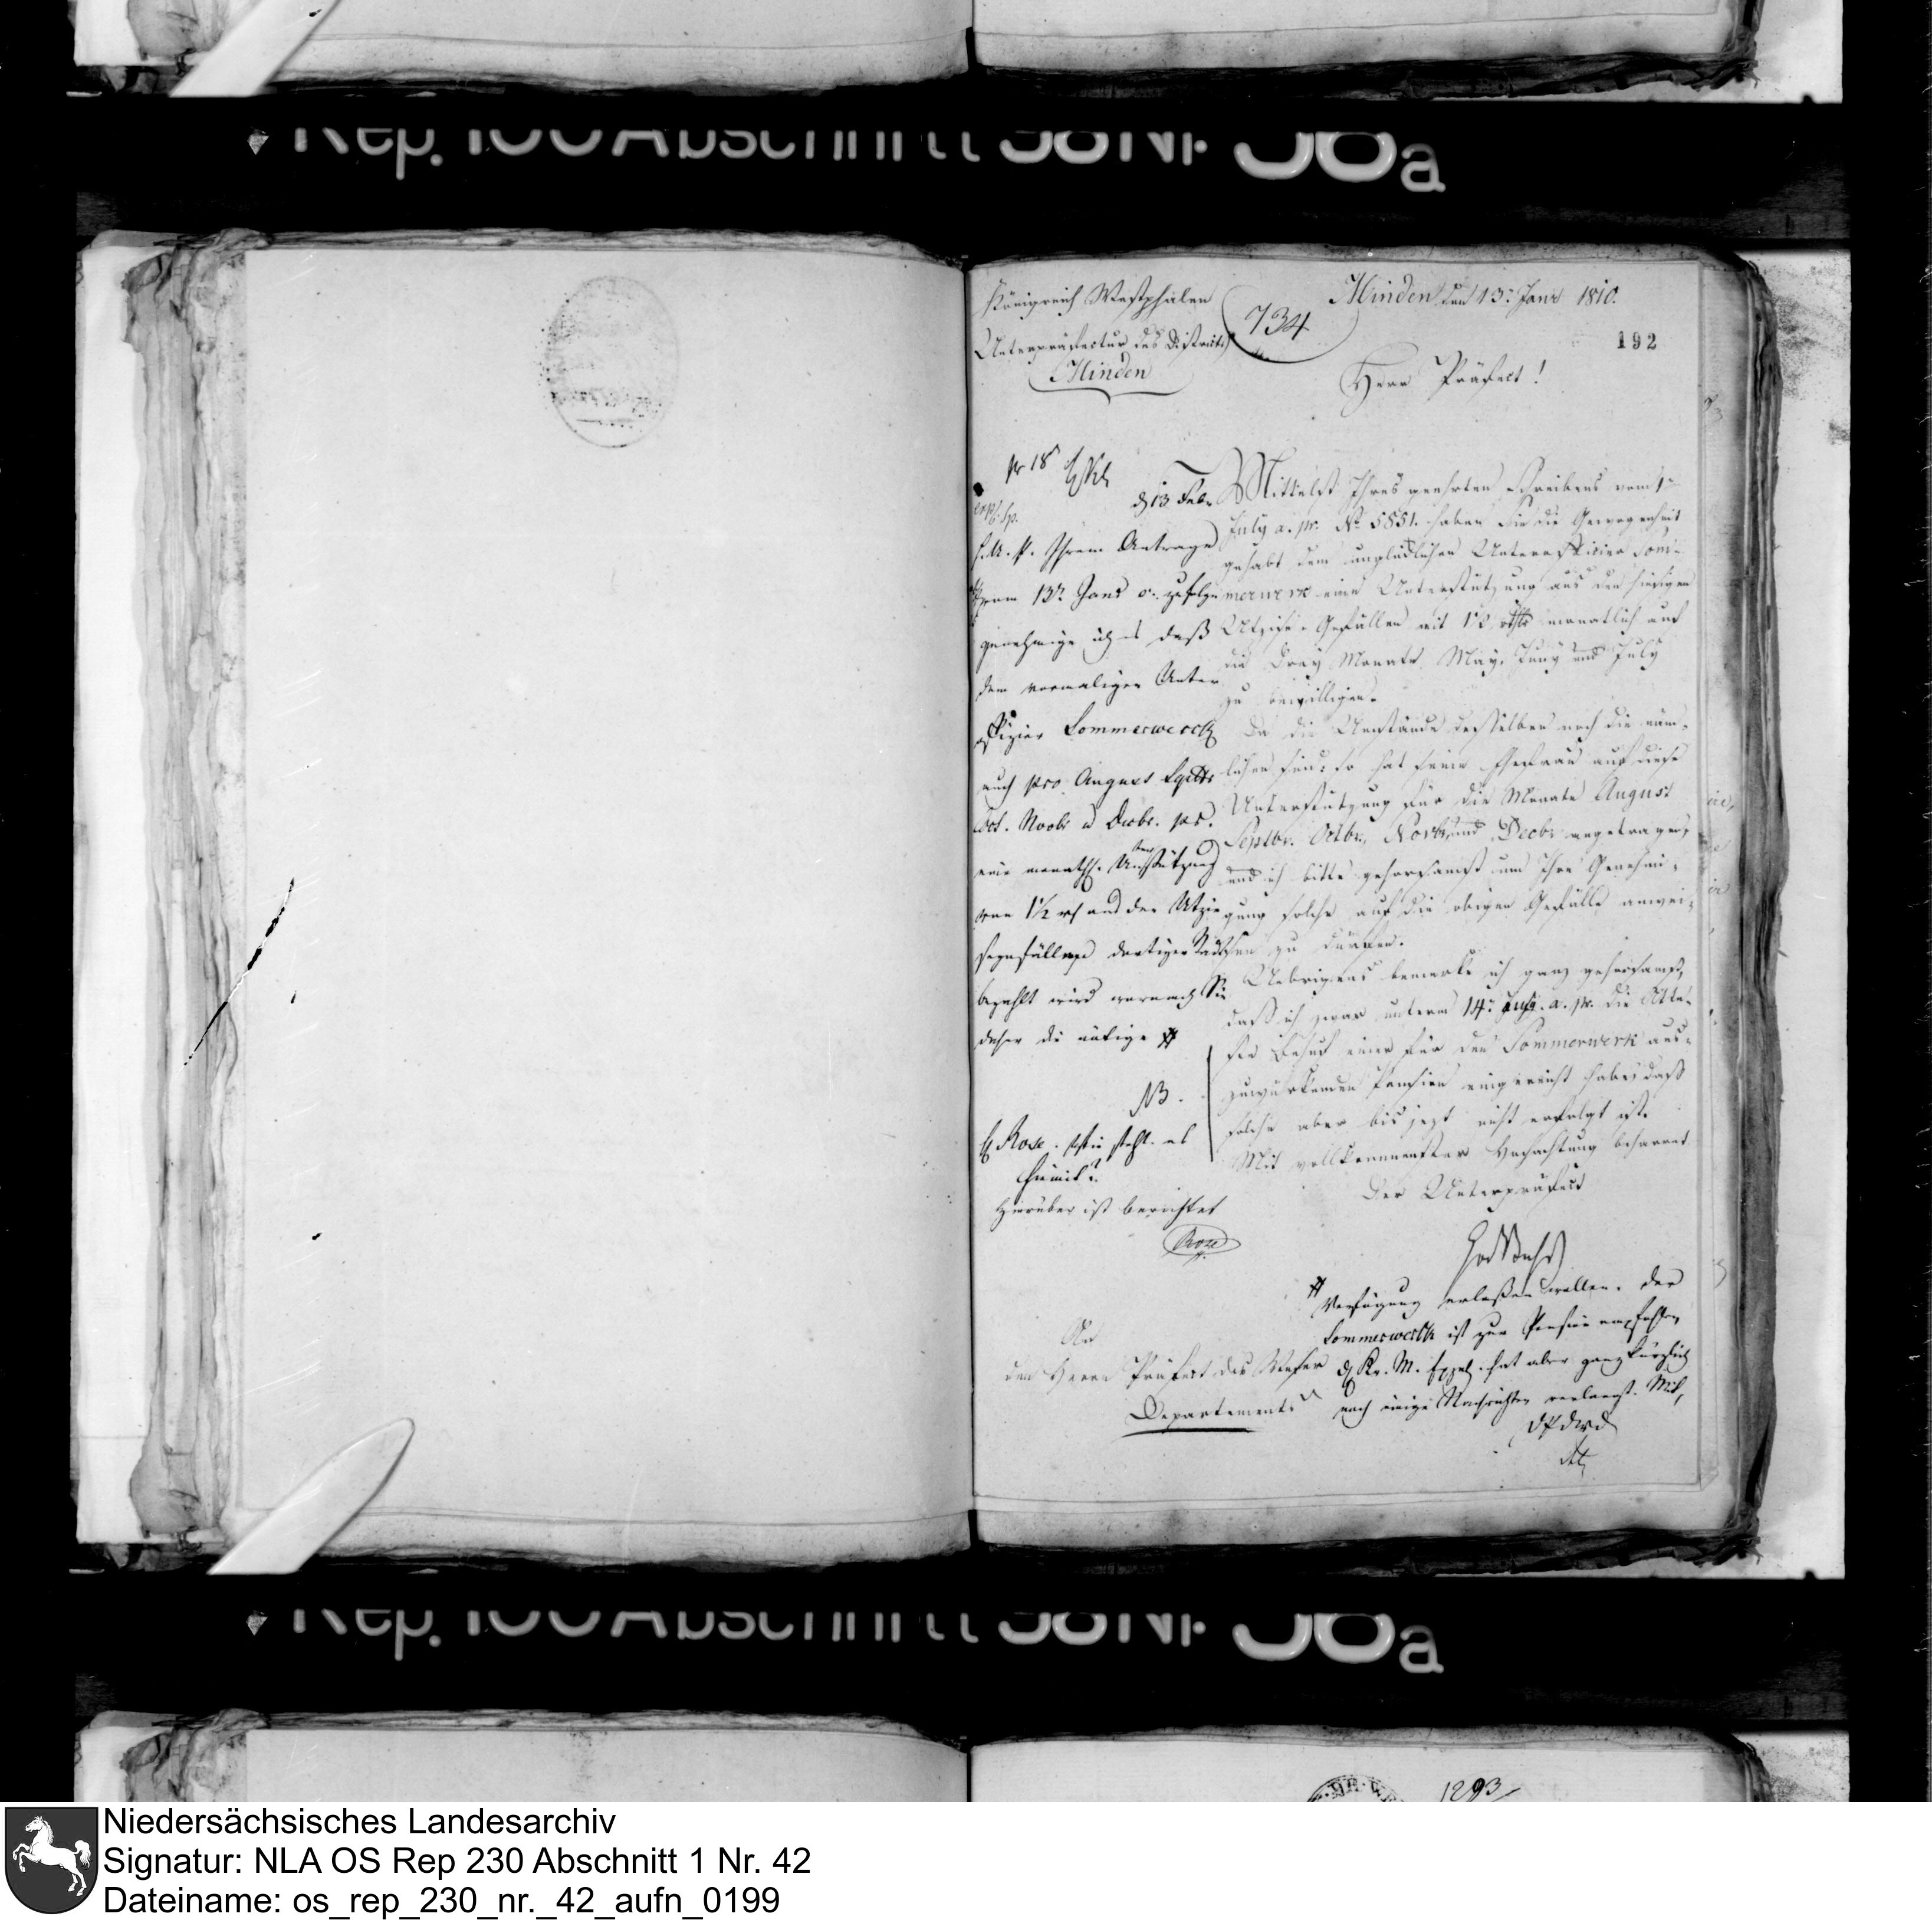 Rep. 100 Abschnitt 58 Nr 38a
Königreich Westphalen
Unterpräfectur des Districts
Minden
734
Minden, den 13n Janr 1810.
192
Herr Präfect!
Mittelst Ihres geehrten Schreibens vom 1n
July a. pr. No 5851. haben Sie die Gewogenheit
gehabt dem unglücklichen Unterofficier Som-
merwerk eine Unterstützung aus den hiesigen
Akzise-Gefällen mit 1 1/2 rthlr monatlich auf
die drey Monate May, Juny und July
zu bewilligen.
Da die Umstände desselben noch die näm-
lichen sind, so hat seine Ehefrau auf diese
Unterstützung für die Monate August
Septbr. Octbr., Novbr, und Decbr angetragen,
und ich bitte gehorsamst um Ihre Genehmi-
gung solche auf die obigen Gefälle anwei-
sen zu dürfen.
Uebrigens bemerke ich ganz gehorsamst,
daß ich zwar unterm 14n a. pr. die Atte-
ste Behuf einer für den Sommerwerk aus-
zuwürkenden Pension eingereicht habe, daß
solche aber bis jezt nicht erfolgt ist.
Mit vollkommenster Hochachtung beharret
Der Unterpräfect
An
den Herrn Präfect des Weser
Departements
pr 18
d 13 Febr
Ihrem Antrage
vom 13n Janr c. zufolge
genehmige ich es daß
dem vormaligen Unter
offizier Sommerwerck
auch pro August Septbr
Oct. Novbr u Decbr. pr.
eine monathl. Unterstützung
von 1 1/2 rt aus den Akzise
gefällen dortiger Stadt
bezahlt wird wornach Sie
daher die nötige #
NB.
H Rose. Wie steht es
hiemit?
Hierüber ist berichtet
Rose
# Verfügung erlaßen wollen. Der
Sommerwerck ist zur Pension empfohlen
d Kr. M. hat aber ganz kürzlich
noch einige Nachrichten verlangt. Mit,
D P d W D
Rep. 100 Abschnitt 58 Nr 38a
1293
Niedersächsisches Landesarchiv
Signatur: NLA OS Rep 230 Abschnitt 1 Nr. 42
Dateiname: os_rep_230_nr._42_aufn_0199